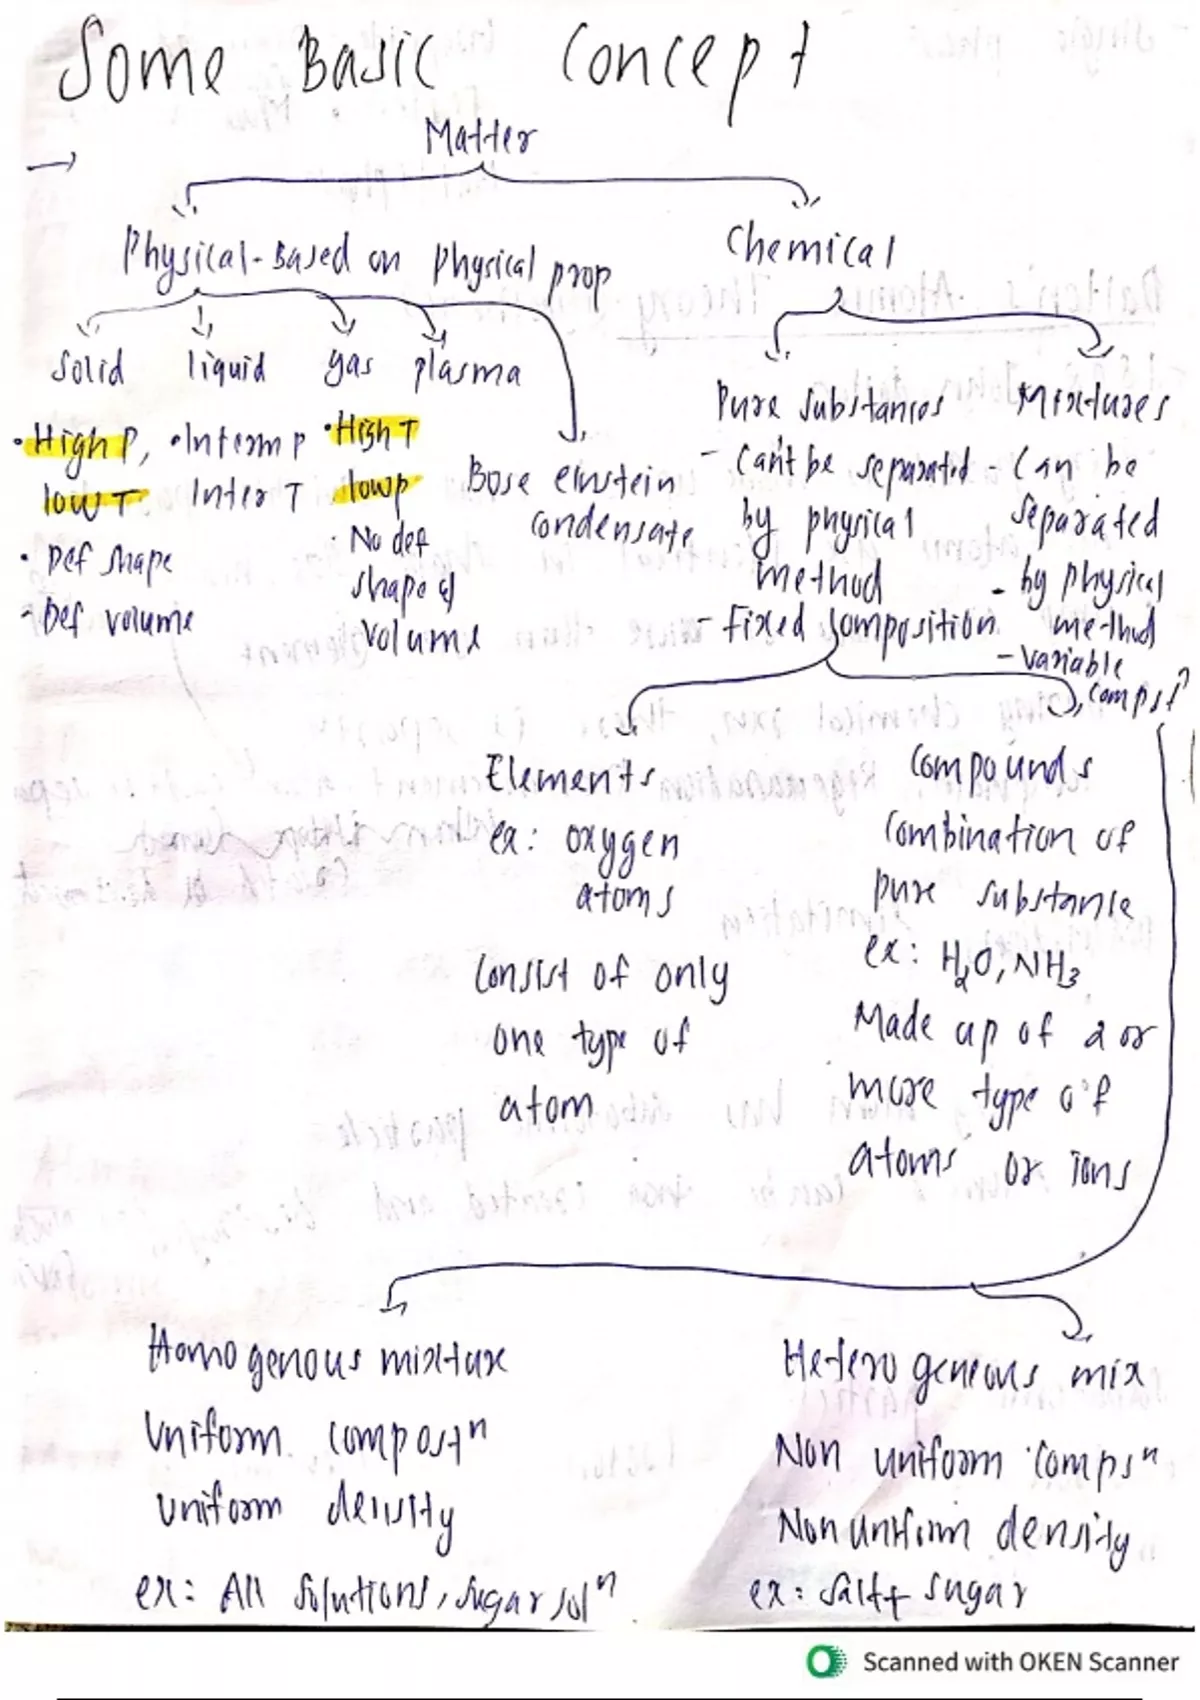 Some Basic Concept
Matter
→
Physical-Based on physical prop
Chemical
Solid liquid gas plasma
Bose einstein
condensate
• High P,
low T
• Def shape
- Def volume
• Interm p
Inter T
• High T
low p
• No def
shape &
volume
Pure substances
- Can't be separated
by physical
method
- Fixed composition
Mixtures
- Can be
separated
- by physical
method
- variable
compstⁿ
Elements
ex: oxygen
atoms
Consist of only
one type of
atom
Compounds
Combination of
pure substance
ex: H₂O, NH₃
Made up of 2 or
more type of
atoms or ions
Homogenous mixture
Uniform compostⁿ
uniform density
ex: All solutions, sugar solⁿ
Heterogeneous mix
Non uniform compsⁿ
Non uniform density
ex: salt + sugar
Scanned with OKEN Scanner